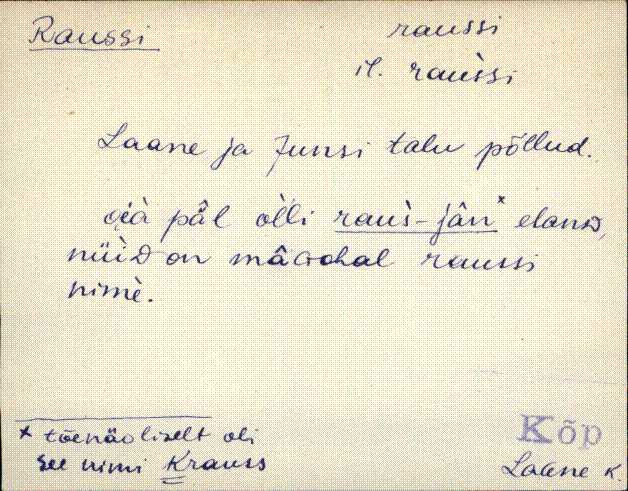 Raussi
raussi
il. raùssi
Laane ja Junsi talu põllud.
pâl òlli raùs-jân* elanD,
nüìD on mâGohal raussi
nimè.
* tõenäoliselt oli
see nimi Krauss
Kõp
Laane k.